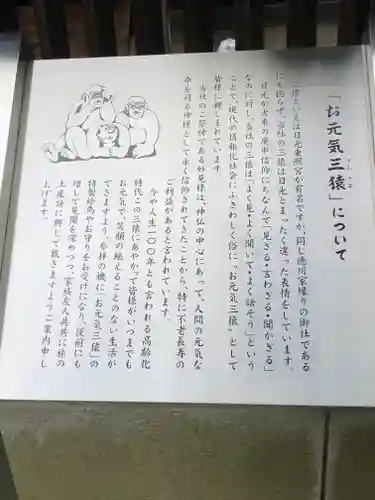 「お元気三猿」について
三猿といえば日光東照宮が有名ですが、同じ徳川家縁りの御社である
にも拘らず、当社の三猿は日光とまったく違った表情をしています。
日光が古来の庚申信仰にちなんで「見ざる・言わざる・聞かざる」
なのに対し、当社の三猿は「よく見・よく聞いて・よく話そう」という
ことで、現代の情報化社会にふさわしく俗に〝お元気三猿〟として
皆様に親しまれています。
当社のご祭神である妙見様は、神仏の中心にあって、人間の元気な
命を司る神様として永く信仰されてきたことから、特に不老長寿の
ご利益があると言われています。
今や人生一〇〇年とも言われる高齢化
時代この三猿にあやかって皆様がいつまでも
お元気で、笑顔の絶えることのない生活が
できますよう、参拝の機に〝お元気三猿〟の
特製絵馬やお守りをお受けになり、従前にも
増して見聞を深めつつ、家族友人共共に旅の
土産話に興じて戴きますようご案内申し
上げます。